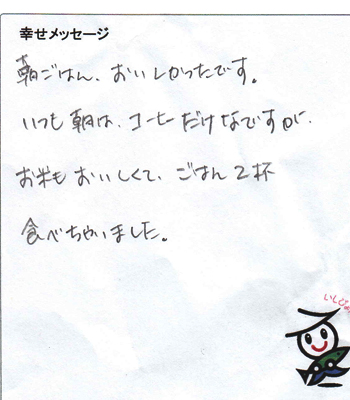 幸せメッセージ
朝ごはん、おいしかったです。
いつも朝は、コーヒーだけなですが、
お米もおいしくて、ごはん2杯
食べちゃいました。